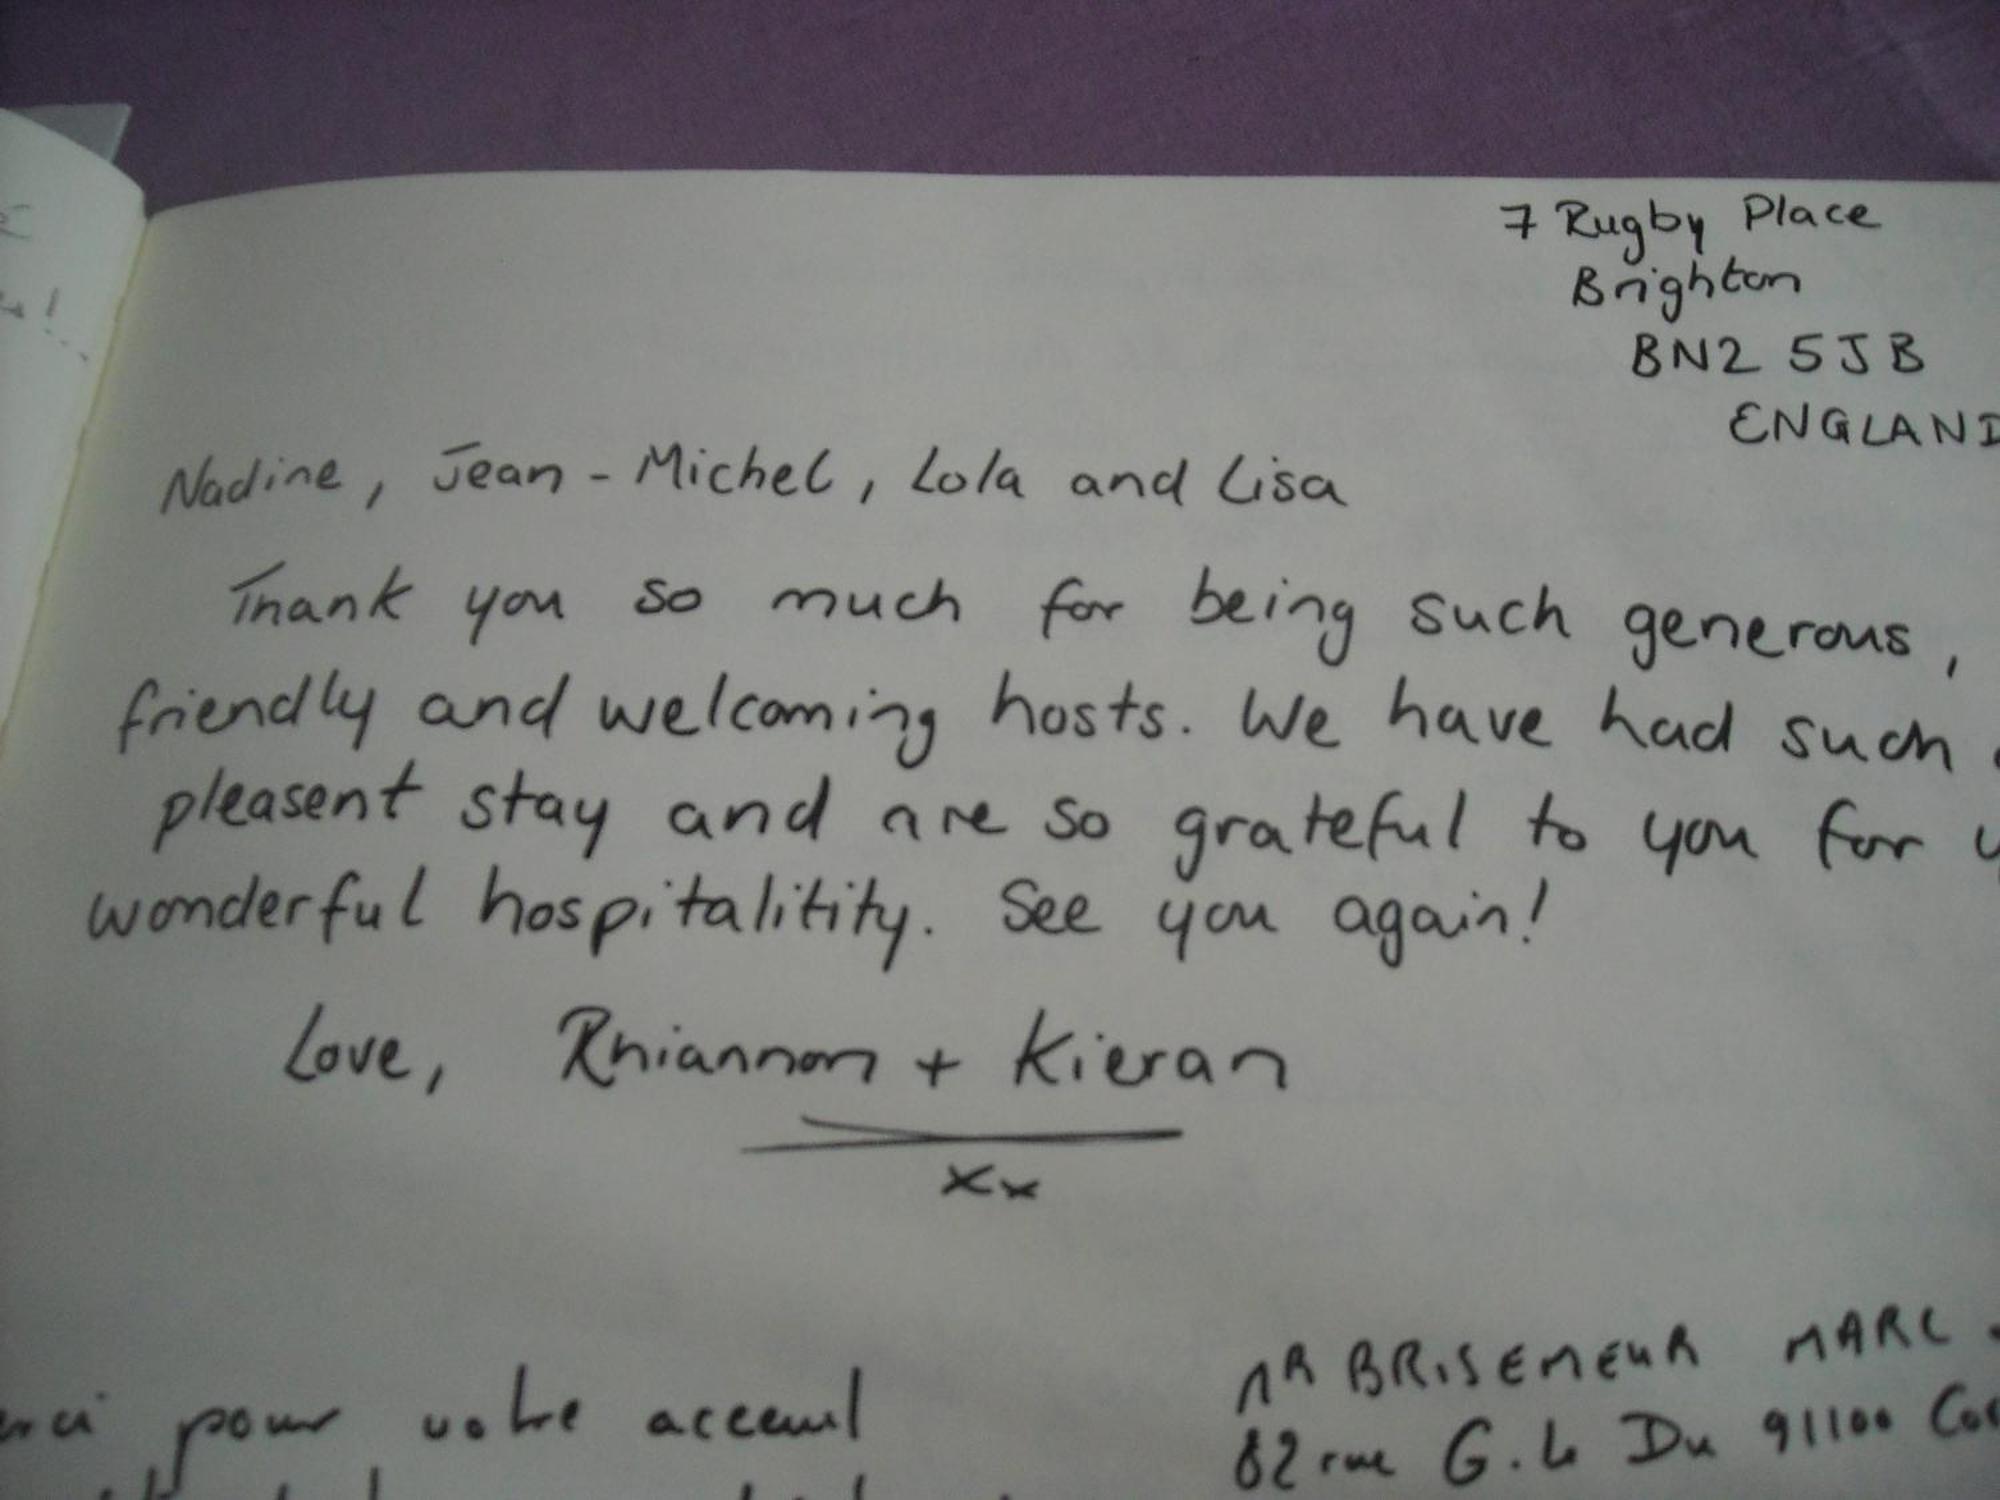 7 Rugby Place
Brighton
BN2 5JB
ENGLAND
Nadine, Jean-Michel, Lola and Lisa
Thank you so much for being such generous,
friendly and welcoming hosts. We have had such
pleasent stay and are so grateful to you for
wonderful hospitalitity. See you again!
Love, Rhiannon + Kieran
xx
MR BRISEMEUR MARC
pour votre acceuil
82 rue G. Le Du 91100